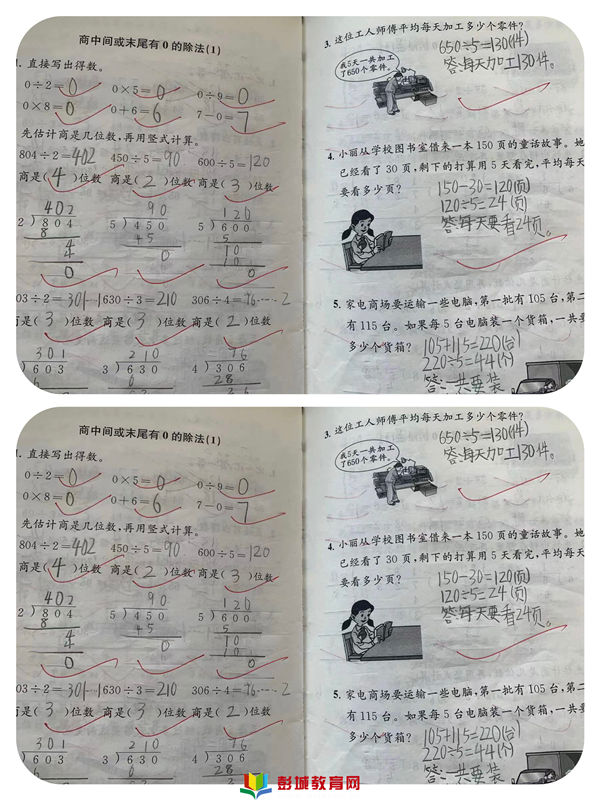 商中间或末尾有0的除法(1)
1. 直接写出得数。
0÷2=0 0×5=0 0÷9=0
0×8=0 0+6=6 7-0=7
先估计商是几位数，再用竖式计算。
804÷2=402 450÷5=90 600÷5=120
商是(4)位数 商是(2)位数 商是(3)位数
402 90 120
2)804 5)450 5)600
8 45 5
4 0 10
4 10
0 0
03÷2=301…1 630÷3=210 306÷4=76……2
商是(3)位数 商是(3)位数 商是(2)位数
301 210 76
2)603 3)630 4)306
6 6 28
3. 这位工人师傅平均每天加工多少个零件？
我5天一共加工
了650个零件。
650÷5=130(件)
答:每天加工130件。
4. 小丽从学校图书室借来一本150页的童话故事。她
已经看了30页，剩下的打算用5天看完，平均每天
要看多少页？
150-30=120(页)
120÷5=24(页)
答:每天要看24页。
5. 家电商场要运输一些电脑，第一批有105台，第二
有115台。如果每5台电脑装一个货箱，一共要
多少个货箱？
105+115=220(台)
220÷5=44(个)
答:一共要装
商中间或末尾有0的除法(1)
1. 直接写出得数。
0÷2=0 0×5=0 0÷9=0
0×8=0 0+6=6 7-0=7
先估计商是几位数，再用竖式计算。
804÷2=402 450÷5=90 600÷5=120
商是(4)位数 商是(2)位数 商是(3)位数
402 90 120
2)804 5)450 5)600
8 45 5
4 0 10
4 10
0 0
03÷2=301…1 630÷3=210 306÷4=76……2
商是(3)位数 商是(3)位数 商是(2)位数
301 210 76
2)603 3)630 4)306
6 6 28
3. 这位工人师傅平均每天加工多少个零件？
我5天一共加工
了650个零件。
650÷5=130(件)
答:每天加工130件。
4. 小丽从学校图书室借来一本150页的童话故事。她
已经看了30页，剩下的打算用5天看完，平均每天
要看多少页？
150-30=120(页)
120÷5=24(页)
答:每天要看24页。
5. 家电商场要运输一些电脑，第一批有105台，第二
有115台。如果每5台电脑装一个货箱，一共要
多少个货箱？
105+115=220(台)
220÷5=44(个)
答:一共要装
彭城教育网